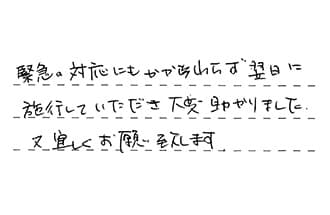 緊急の対応にもかかわらず翌日に
施行していただき大変助かりました.
又宜しくお願い致します.